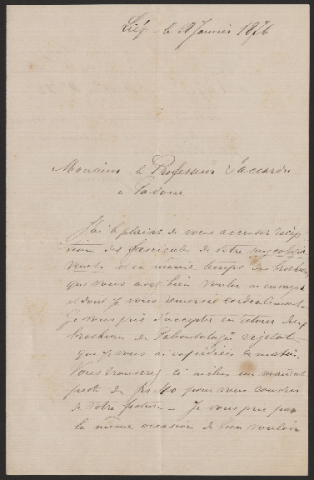 Liég. le 28 Janvier 1876
Monsieur le Professeur Saccardo
à Padoue
J'ai le plaisir de vous accuser récep
tion des fascicules de votre mycologie
en même temps des brochures
que vous avez bien voulu m'envoyer
et dont je vous remercie cordialement
Je vous prie d'accepter en retour deux
brochures de Paléontologie végétale
que je vous ai expédiées ce matin.
Vous trouverez ci inclus un mandat
poste de pour vous couvrir
de votre facture. Je vous prie par
la même occasion de bien vouloir